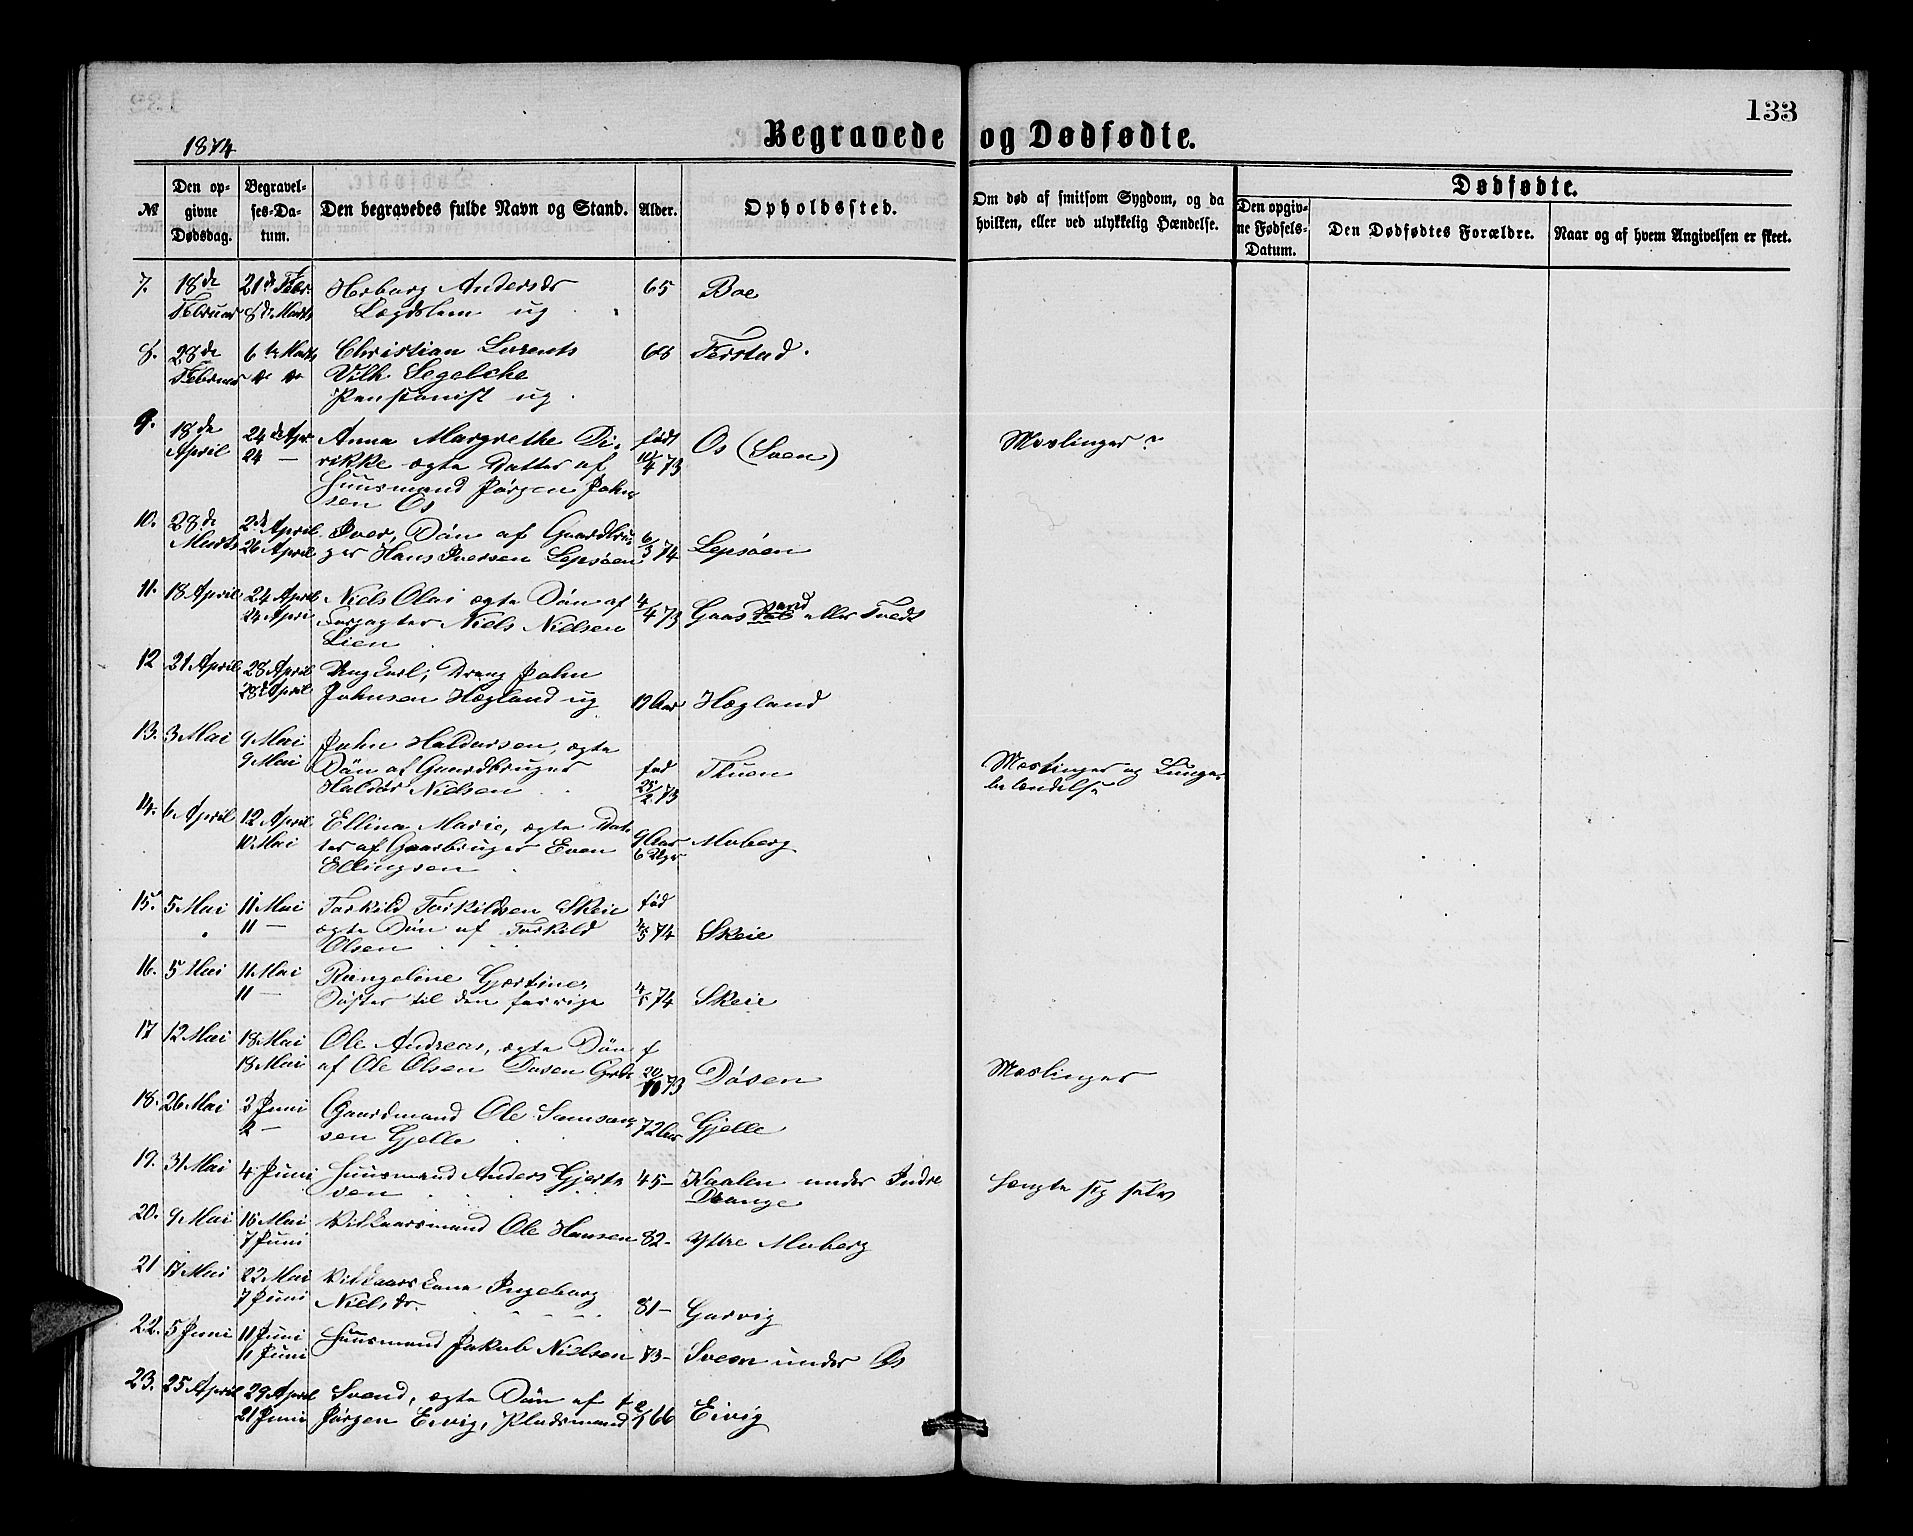 133
1874
Begravede og Dødfødte.
№
Den opgivne Dødsdag.
Begravelses-Datum.
Den begravedes fulde Navn og Stand.
Alder.
Opholdssted.
Om død af smitsom Sygdom, og da hvilken, eller ved ulykkelig Hændelse.
Dødfødte.
Den opgivne Fødsels-Datum.
Den Dødfødtes Forældre.
Naar og af hvem Angivelsen er skeet.
7. 18de 21de Febr Herborg Andersdr 65 Boe
Februar 8de Marts Lægdslem ug
8. 28de 6te Marts Christian Lorents 68 Ferstad.
Februar Vilh Segelcke
Pensionist ug
9. 18de 24de Apr Anna Margrethe Di- født Os (Sven) Meslinger
April 24 — rikke ægte Datter af 10/4 73
Huusmand Jørgen John
sen Os
10. 28de 2de April Iver, Søn af Gaardbru 6/3 74 Lepsøen
Marts 26 April ger Hans Iversen Lepsøen
11. 18 April 24 April Niels Olai ægte Søn af 4/4 73 Gaassand eller Tvedt
24 April Niels Nielsen
Lien
12 21 April 28 April Ungkarl, Dreng John
28de April Johnsen Hegland ug 19 Aar Hegland
13. 3 Mai 9 Mai John Haldorsen, ægte
9 Mai Søn af Gaardbruger fød Thuen Meslinger og Lunge
Haldor Nielsen 25/2 73 betændelse
14. 6 April 12 April Ellina Marie, ægte Dat
10 Mai ter af Gaarbruger Even 9 Aar Moberg
Ellingsen 6 Uger
15. 5 Mai 11 Mai Torkild Torkildsen Skeie fød
11 — ægte Søn af Torkild 4/5 74 Skeie
Olsen
16. 5 Mai 11 Mai Rangeline Gjertine,
11 — Søster til den forrige 4/5 74 Skeie
17 12 Mai 18 Mai Ole Andreas, ægte Søn f
18 Mai af Ole Olsen Døsen Grdb 20/10 73 Døsen Meslinger
18. 26 Mai 2 Juni Gaardmand Ole Samson
2 — sen Gjelle 72 Aar Gjelle
19. 31 Mai 4 Juni Huusmand Anders Gjert 45 — Haalen under Indre hængte sig selv
sen Drange
20. 9 Mai 16 Mai Vilkaarsmand Ole Hansen 82 - Yttre Moberg
7 Juni
21 17 Mai 22 Mai Vilkaarskone Ingeborg
7 Juni Nielsdr. 81 — Gorvig
22. 5 Juni 11 Juni Huusmand Jakob Nielsen 73 — Sveen under Os
11 Juni
23. 25 April 29 April Svend, ægte Søn af f
21 Juni Jørgen Eivig, Pladsmand 2/1 66 Eivig